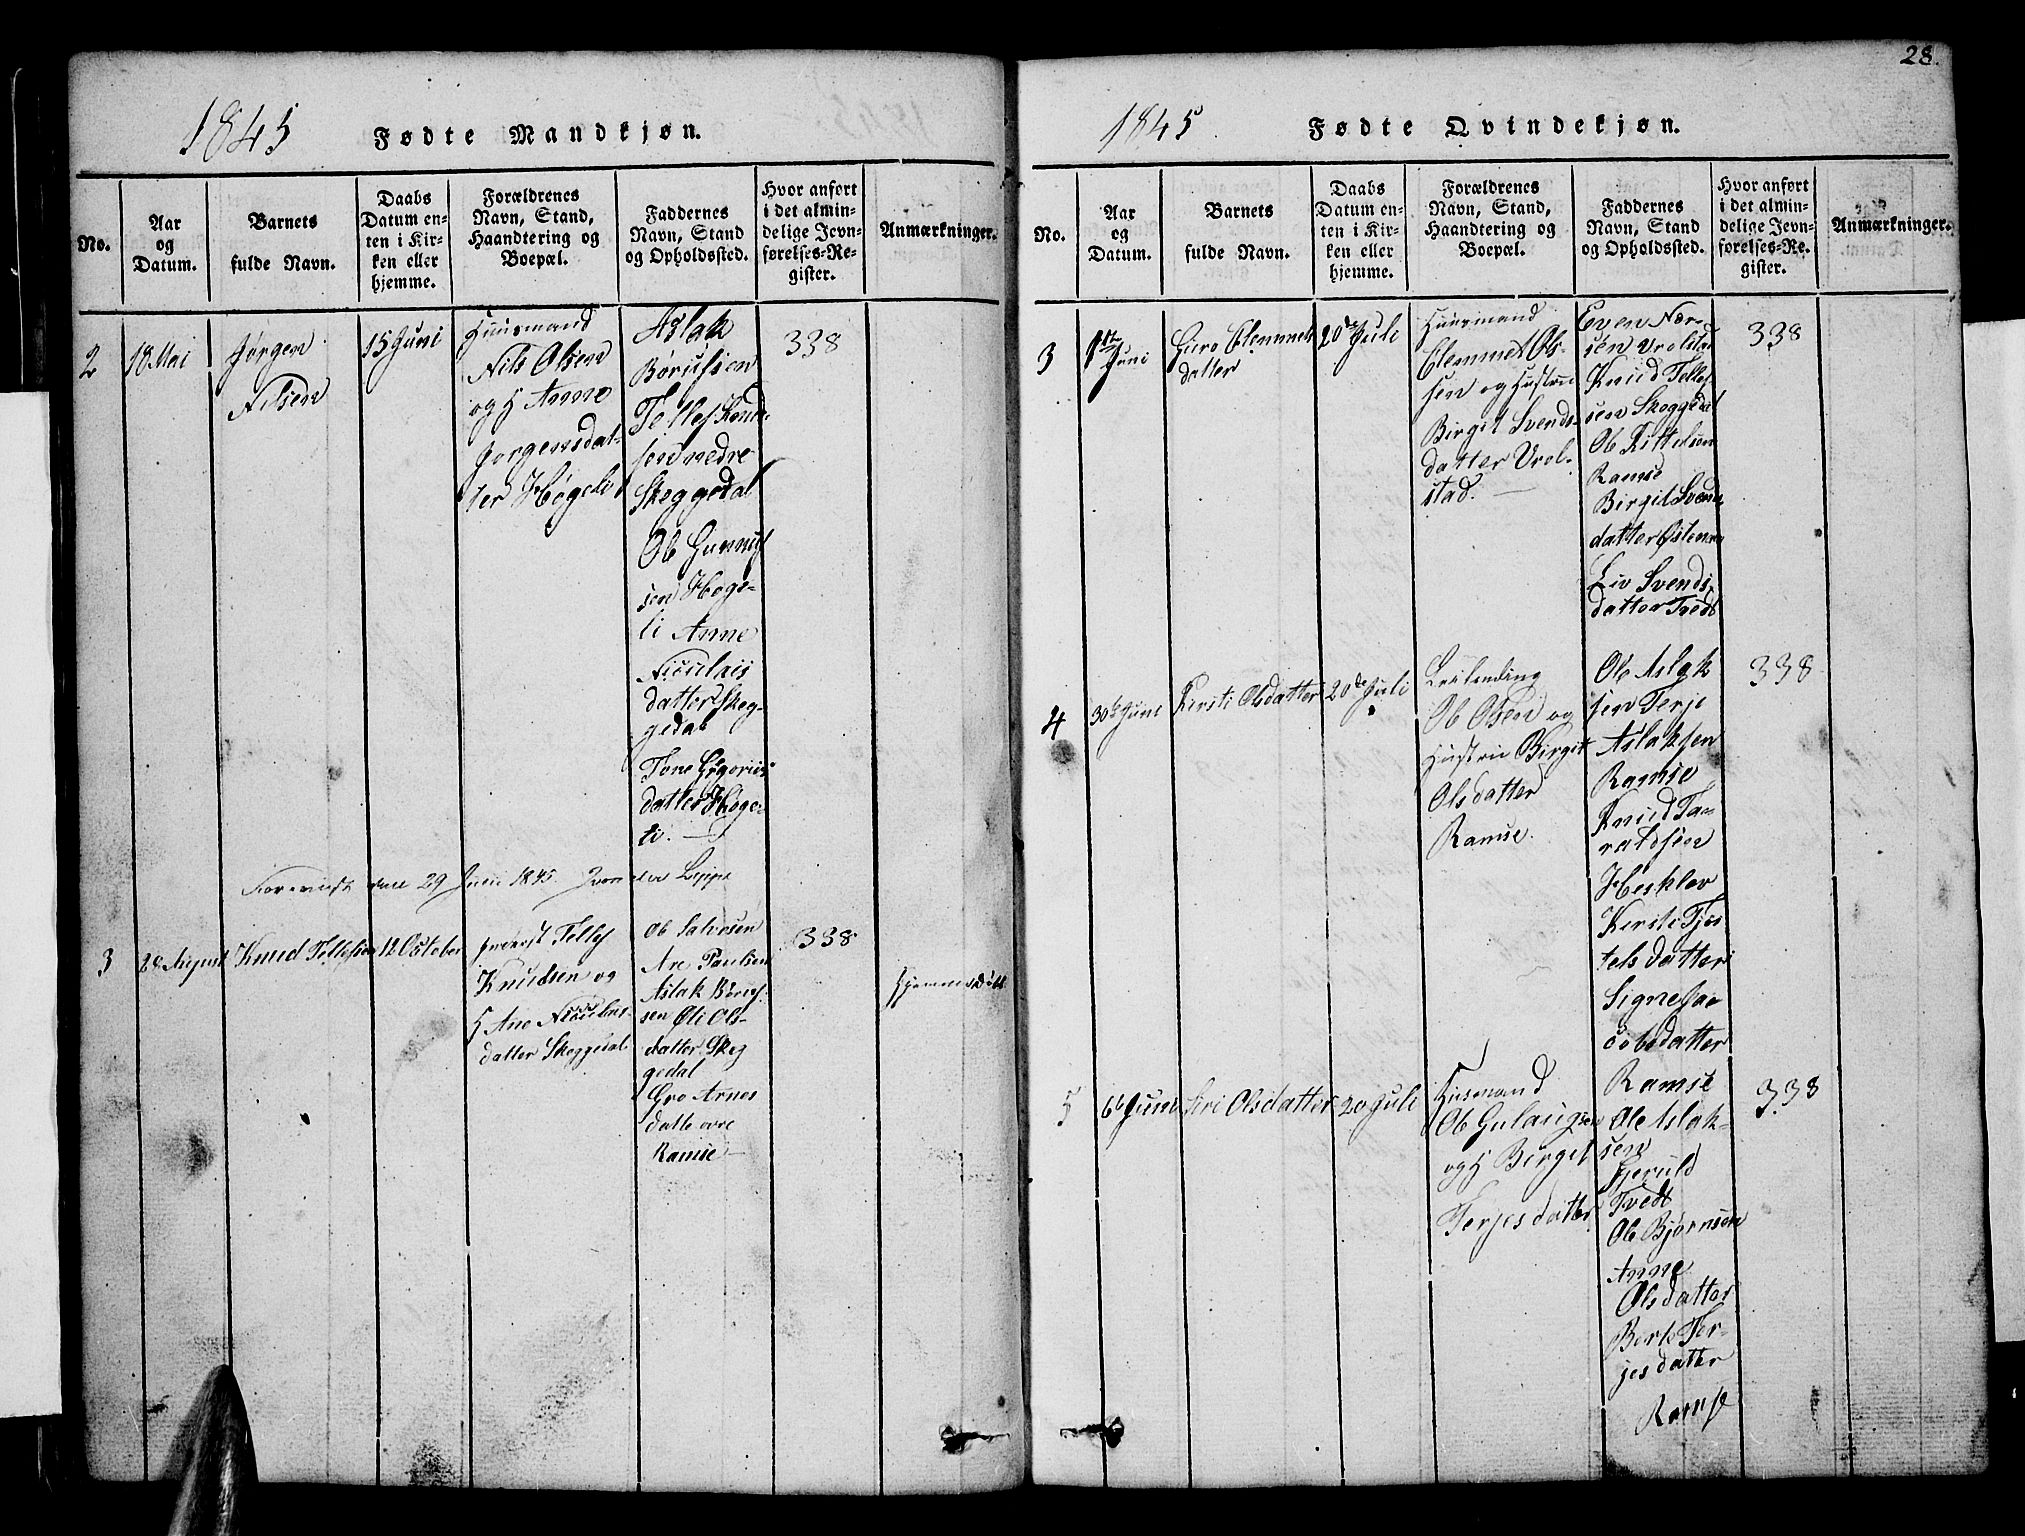 28.
1845 Fødte Mandkjøn.
No.
Aar
og
Datum.
Barnets
fulde Navn.
Daabs
Datum en-
ten i Kir-
ken eller
hjemme.
Forældrenes
Navn, Stand,
Haandtering og
Boepæl.
Faddernes
Navn, Stand
og Opholdssted.
Hvor anført
i det almin-
delige Jevn-
førelses-Re-
gister.
Anmærkninger.
2
18 Mai
Jørgen
Nilsen
15 Juni
Huusmand
Nils Olsen
og H Anne
Jørgensdat-
ter Høgeli
Aslak
Børufsen
Tellef Knud-
sen nedre
Skeggedal
Ole Gunnuf
sen Høge-
li Anne
Nicolais
datter Skeg-
gedal
Tone Gregorius
datter Høge-
li.
338
den 29 Juni 1845.
3
28 August
Knud Tellefsen
12 October
Tellef
Knudsen og
H Ane Nicolais-
datter Skeggedal
Ole Salvesen
Are Paulsen
Aslak Børuf-
sen Øli Ols-
datter Skeg
gedal
Gro Arnes
datte øvre
Ramse
338
Hjemmedøbt
1845. Fødte Qvindekjøn.
No.
Aar
og
Datum.
Barnets
fulde Navn.
Daabs
Datum en-
ten i Kir-
ken eller
hjemme.
Forældrenes
Navn, Stand,
Haandtering og
Boepæl.
Faddernes
Navn, Stand
og Opholdssted.
Hvor anført
i det almin-
delige Jevn-
førelses-Re-
gister.
Anmærkninger.
3
1ste
Juni
Guro Clemmets
datter
20de Juli
Huusmand
Clemmet Ol-
sen og Hustru
Birgit Svends-
datter Vrol-
stad.
Even Nær-
sen Vrolstad
Knud Tellef
sen Skeggedal
Ole Kittelsen
Ramse
Birgit Svends
datter
Liv Svends
datter Tvedt
338
4
30te Juni
Kirsti Olsdatter
20de Juli
Leilending
Ole Olsen og
Hustru Birgit
Olsdatter
Ramse.
Ole Aslak
sen Terje
Aslaksen
Ramse
Knud Ta-
raldsen
Hesklov
Kirsti Tjøs
telsdatter
Signe Jac
cobsdatter
Ramse
338
5
6te Juni
Siri Olsdatter
20 Juli
Husmand
Ole Gulaugsen
og H Birget
Terjesdatter
Ole Aslak-
sen
Gjeruld
Tvedt
Ole Bjørnsen
Anne
Olsdatter
Berte Ter-
jesdatter
Ramse
338